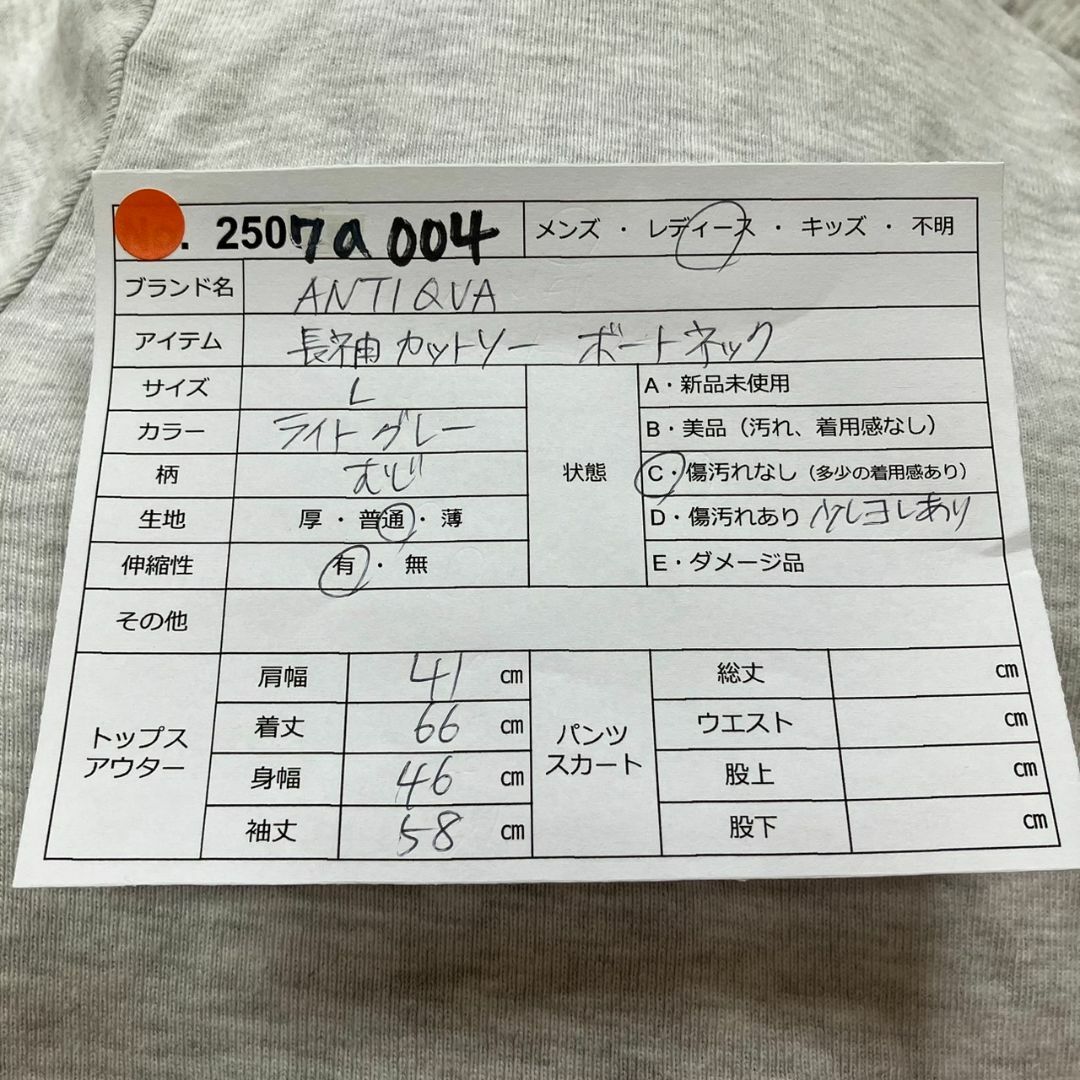 No. 2507a004 メンズ ・ レディース ・ キッズ ・ 不明
ブランド名 ANTIQUA
アイテム 長袖カットソー ボートネック
サイズ L
カラー ライトグレー
柄 むじ
生地 厚 ・ 普通 ・ 薄
伸縮性 有 ・ 無
状態
A・新品未使用
B・美品（汚れ、着用感なし）
C・傷汚れなし（多少の着用感あり）
D・傷汚れあり ヨレあり
E・ダメージ品
その他
トップス
アウター
肩幅 41 cm
着丈 66 cm
身幅 46 cm
袖丈 58 cm
パンツ
スカート
総丈 cm
ウエスト cm
股上 cm
股下 cm